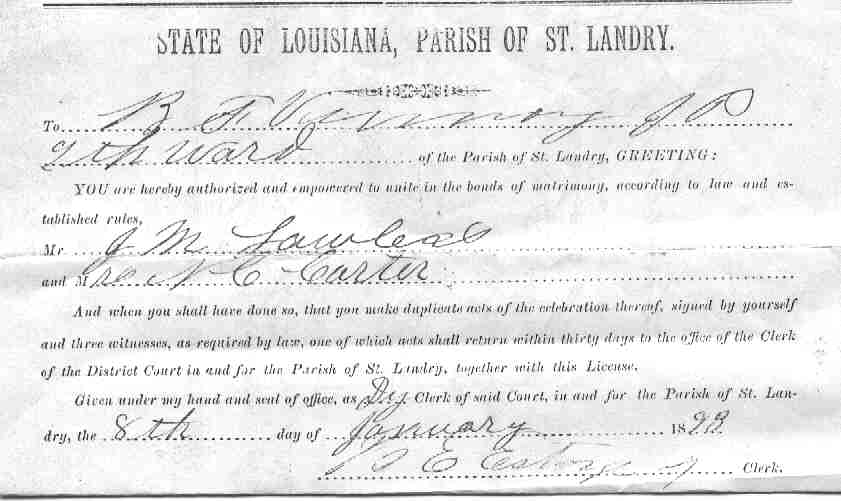 STATE OF LOUISIANA, PARISH OF ST. LANDRY.
To B. F. J P
9th Ward of the Parish of St. Landry, GREETING:
YOU are hereby authorized and empowered to unite in the bonds of matrimony, according to law and es-
tablished rules,
Mr J M Lawless
and Mrs N C Carter
And when you shall have done so, that you make duplicate acts of the celebration thereof, signed by yourself
and three witnesses, as required by law, one of which acts shall return within thirty days to the office of the Clerk
of the District Court in and for the Parish of St. Landry, together with this License.
Given under my hand and seal of office, as Dy Clerk of said Court, in and for the Parish of St. Lan-
dry, the 8th day of January 189
B E Clerk.